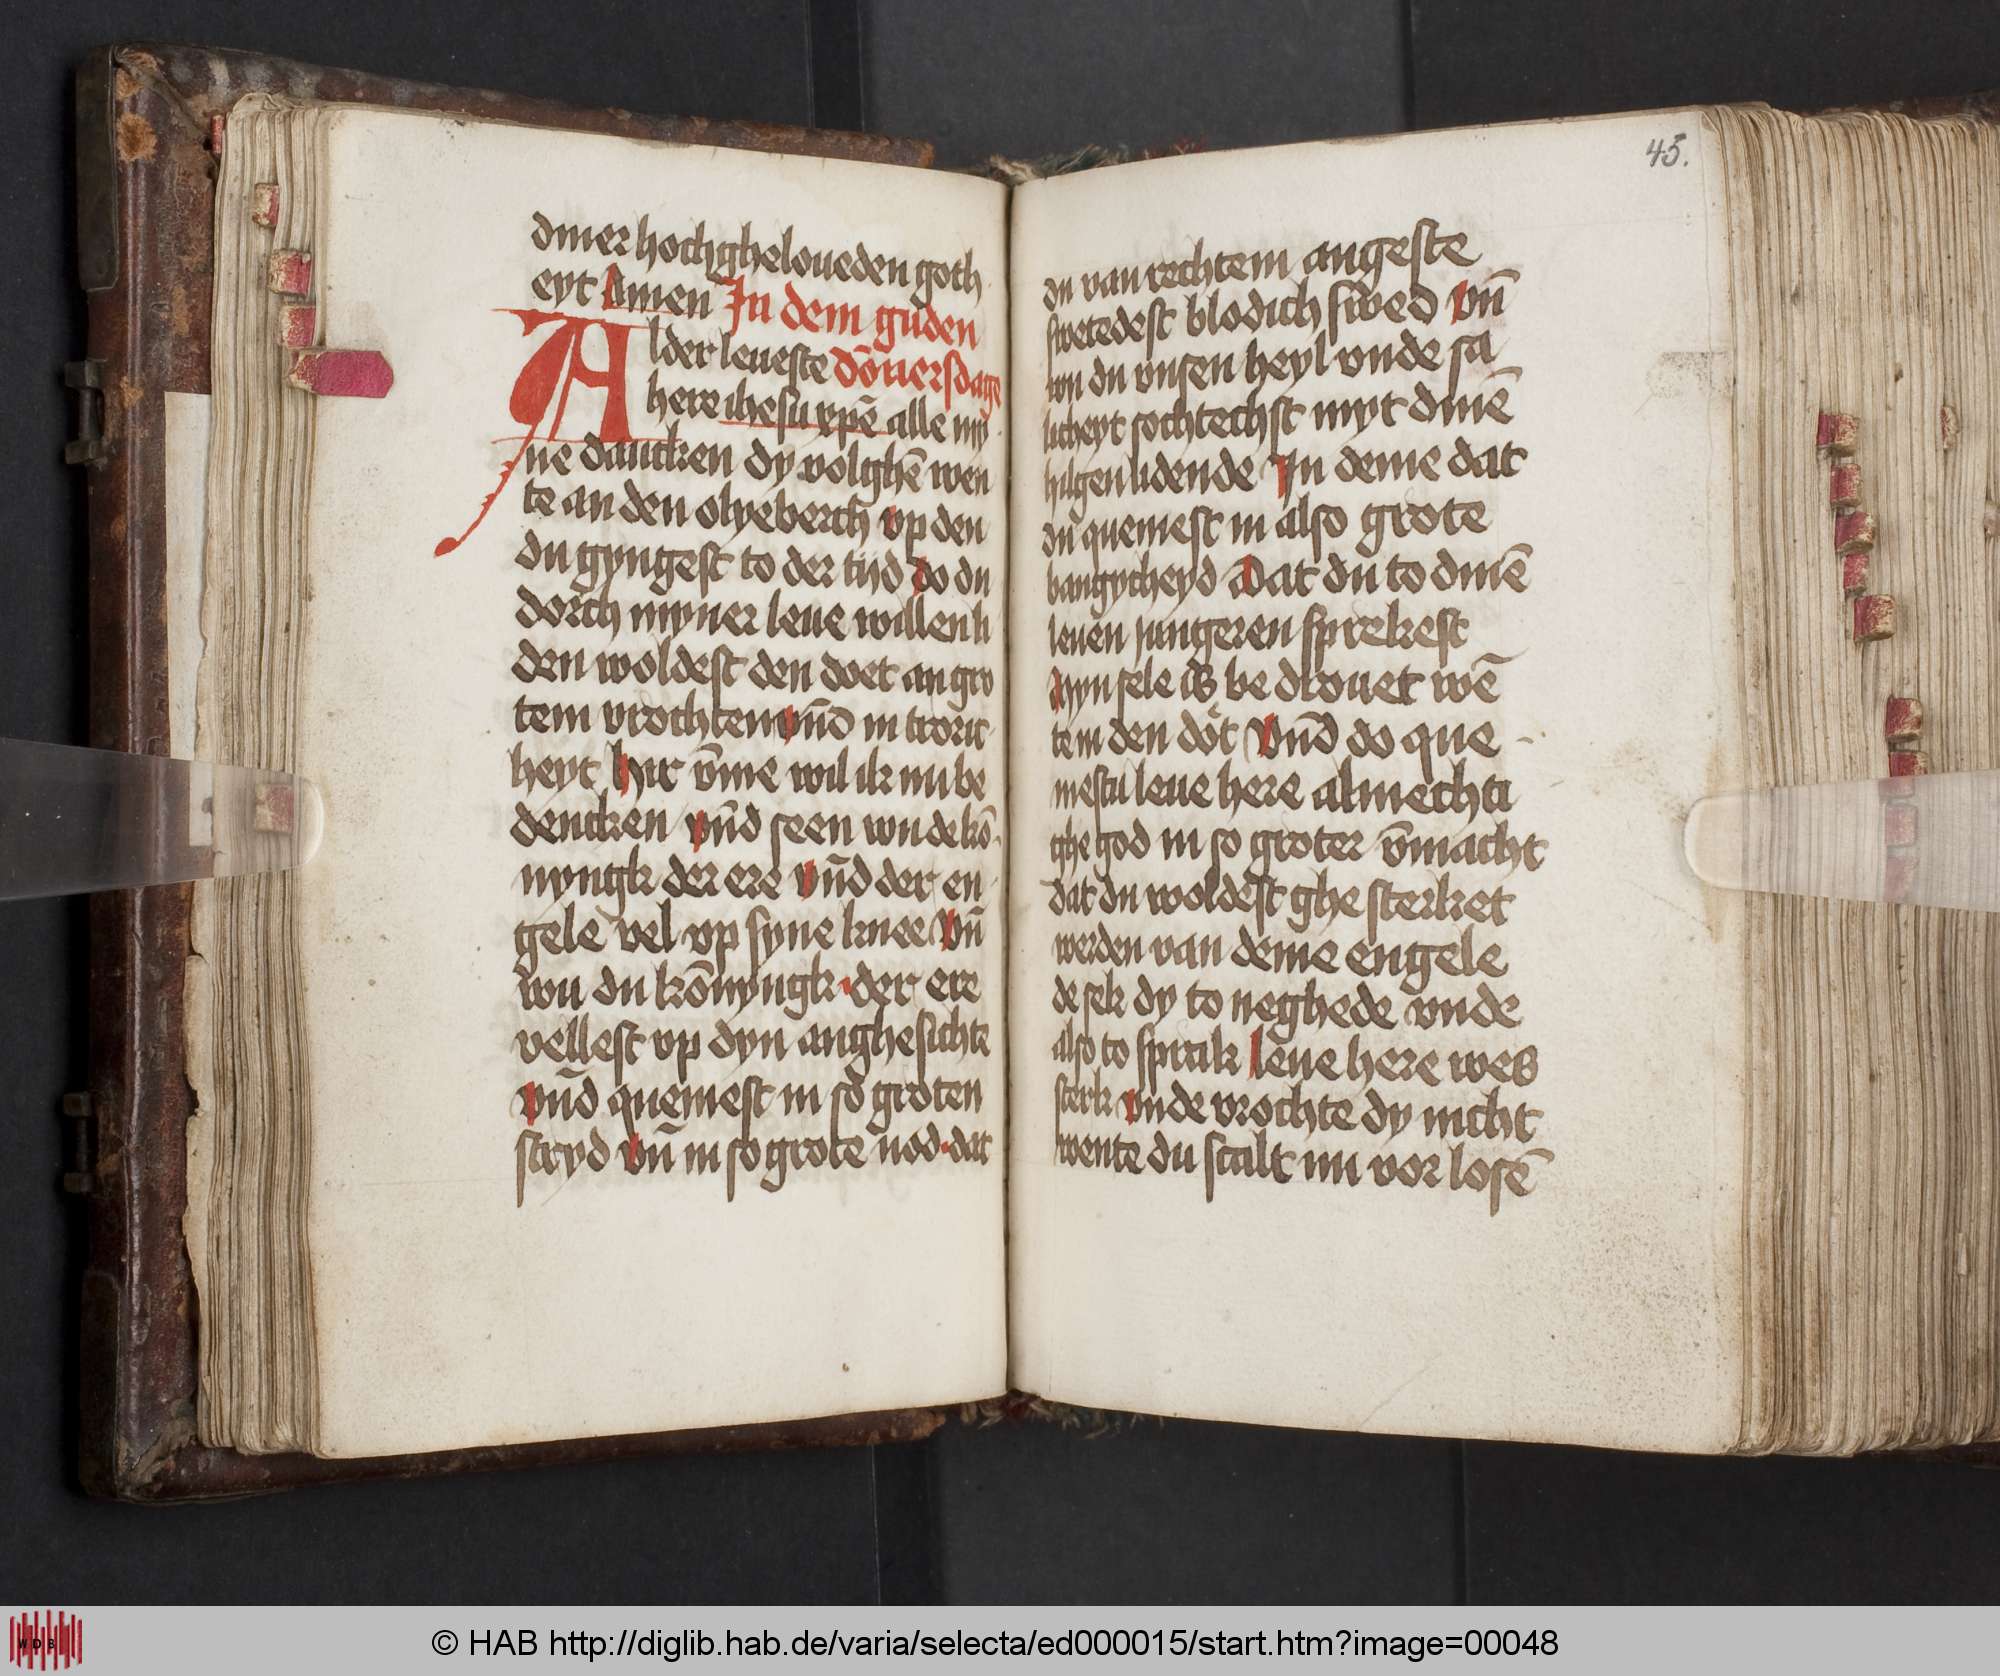 diner hochgheloueden goth
eyt Amen In dem guden
Alder leueste dōnersdage
here ihesu xpē alle my
ne dancken dy volghē wen
te an den olyeberch vp den
du gyngest to der tijd do du
dorch myner leue willen li
den woldest den doet an gro
tem vrochten vn̄d in troric
heyt hir v̄me wil ik nu be
dencken vn̄d seen wu de kō
nyngk der ere vn̄d der en
gele vel vp syne knee vn̄
wu du kōnyngk der ere
vellest vp dyn anghesichte
vn̄d quemest in so groten
stryd vn̄ in so grote nod dat
45.
du van rechtem angeste
swetedest blodich swed vn̄
wu du vnsen heyl vnde sa
licheyt sochtechst myt dinē
hilgen lidende In deme dat
du quemest in also grote
bangycheyd Dat du to dinē
leuen jungeren sprekest
Myn sele is be drouet wē
tem den döt vn̄d do que
mestu leue here almechti
ghe god in so groter v̄macht
dat du woldest ghe sterket
werden van deme engele
de sek dy to neghede vnde
also to sprak leue here wes
sterk vnde vrochte dy nicht
wente du scalt nu vor losē
WDB
© HAB http://diglib.hab.de/varia/selecta/ed000015/start.htm?image=00048